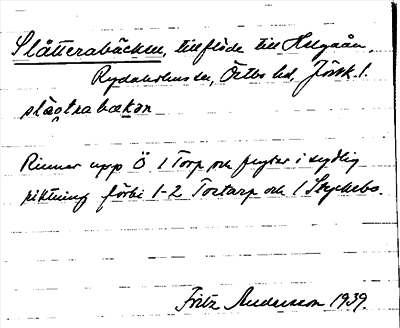 Slåtterabäcken, tillflöde till Helgaån,
Rydaholms sn, Östbo hd, Jönk. l.
slåʈrabækən
Rinner upp Ö 1 Torp och flyter i sydlig
riktning förbi 1-2 Tortarp och 1
Fritz Andersson 1939.